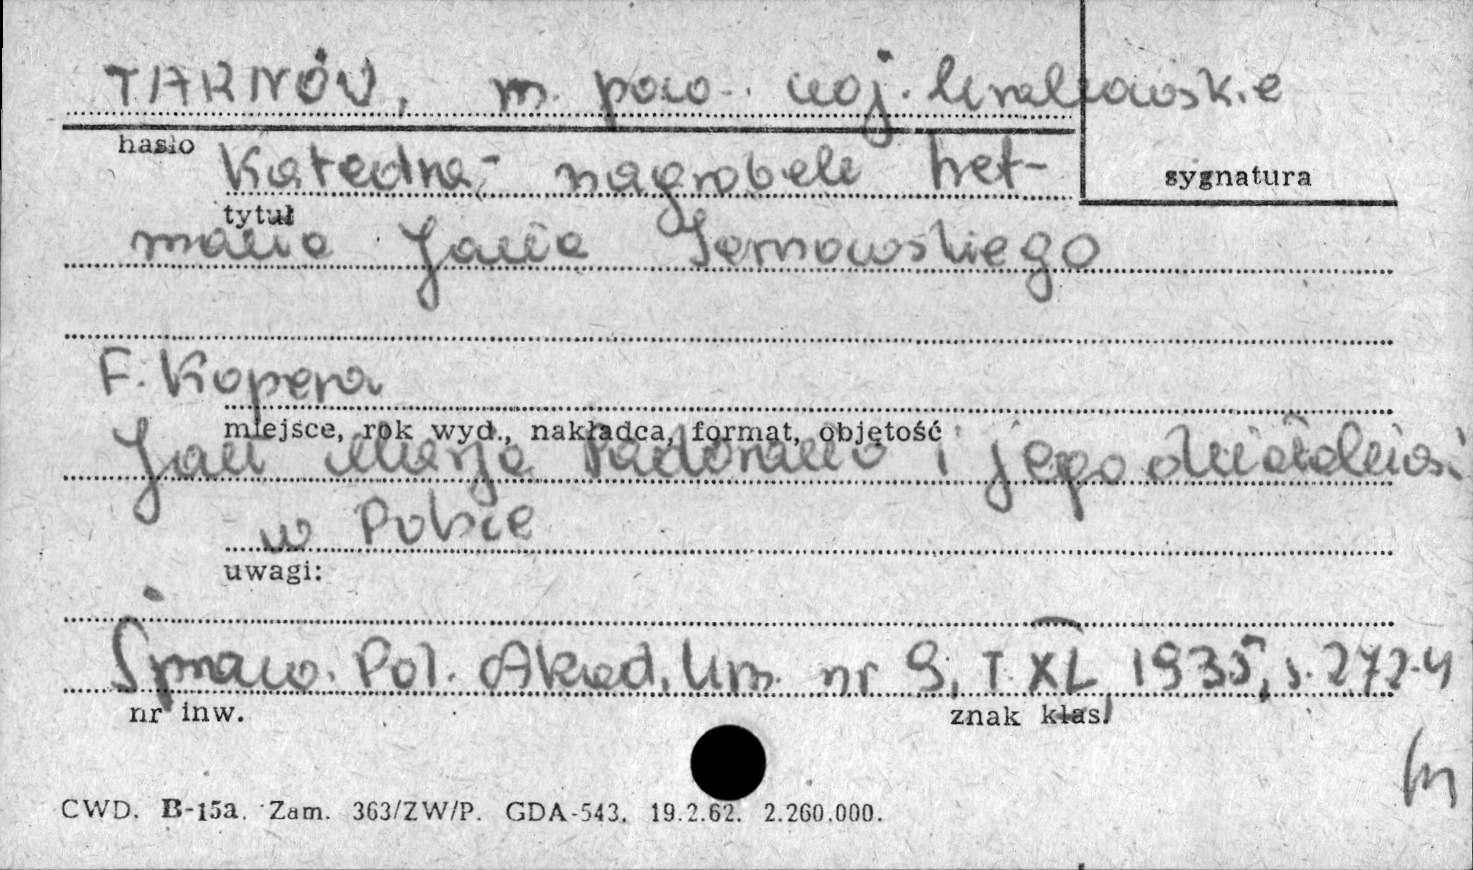 TARNÓW, m. pow. woj. krakowskie
hasło
Katedra - nagrobek het-
sygnatura
tytuł
mana Jana Tarnowskiego
F. Kopera
miejsce, rok wyd., nakładca, format, objętość
Jan Maria Padovano i jego działalność
w Polsce
uwagi:
Spraw. Pol. Akad. Um. nr 9, T. XL, 1935, s. 272-4
nr inw.
znak klas.
CWD. B-15a. Zam. 363/ZW/P. GDA-543. 19.2.62. 2.260.000.